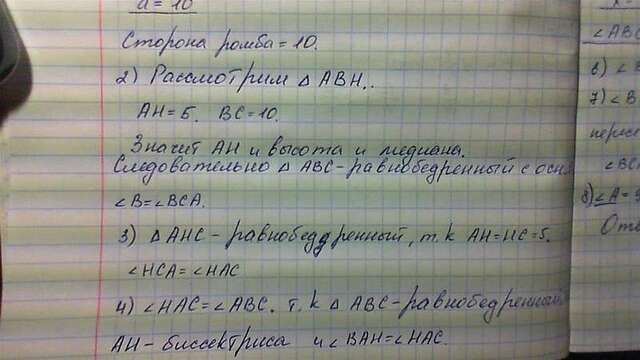 a = 10
Сторона ромба = 10.
2) Рассмотрим △ ABH.
AH = 5. BC = 10.
Значит AH и высота и медиана.
Следовательно △ ABC - равнобедренный с осн
∠B = ∠BCA.
3) △AHC - равнобедренный, т.к AH = HC = 5.
∠HCA = ∠HAC
4) ∠HAC = ∠ABC. т.к △ ABC - равнобедренный
AH - биссектриса и ∠BAH = ∠HAC.
∠ABC
6) ∠B
7) ∠B
пересе
∠BCA
8) ∠A =
Отв